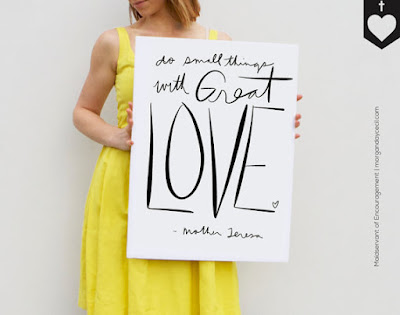 do small things
with Great
LOVE.
- Mother Teresa
Maidservant of Encouragement | morgandaycecil.com